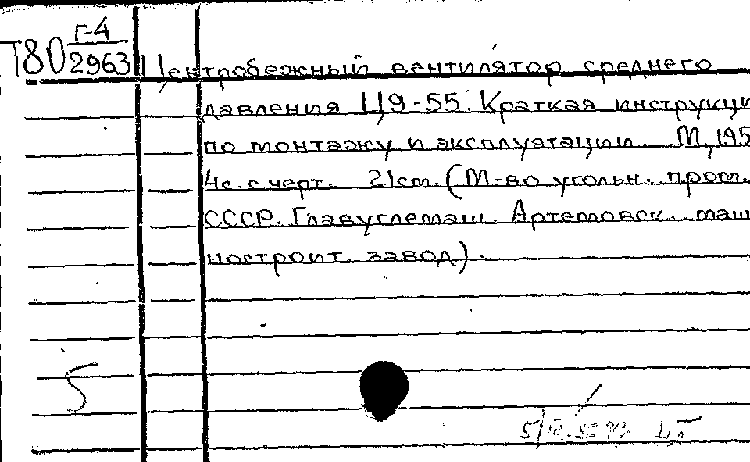 Г-4
Т80 2963
Центробежный вентилятор среднего
давления ЦЭ-55. Краткая инструкци
по монтажу и эксплуатации. М, 195
4с. с черт. 21см. (М-во угольн. пром.
СССР. Главуглемаш. Артемовск. маш
иностроит. завод).
5